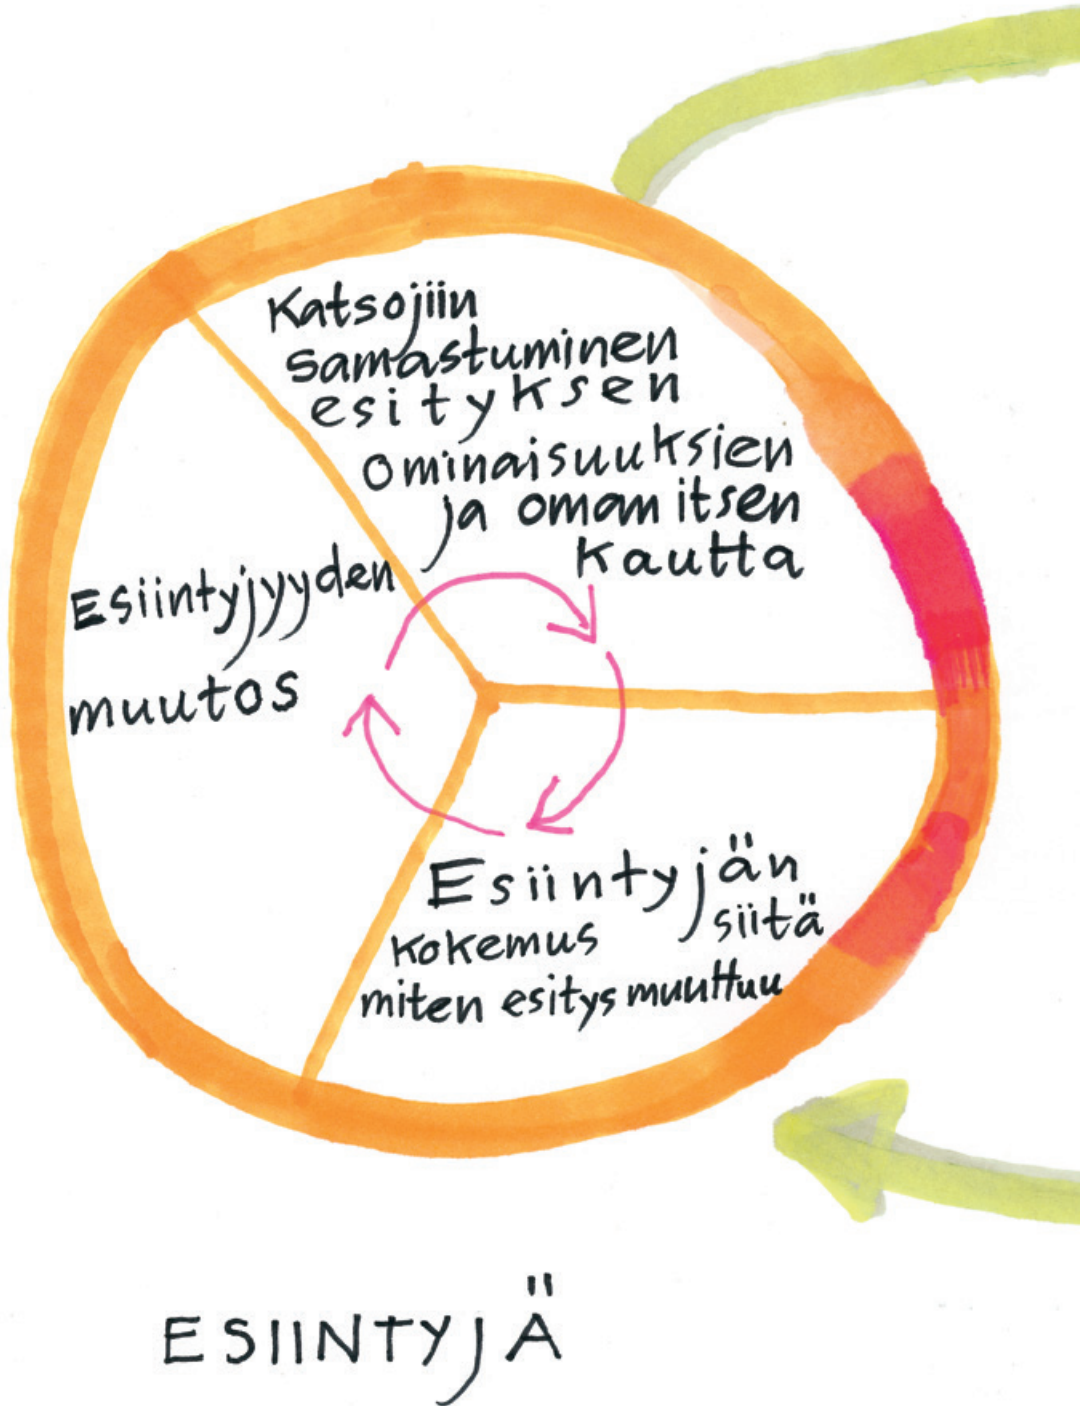 Katsojiin
samastuminen
esityksen
ominaisuuksien
ja oman itsen
kautta
Esiintyjyyden
muutos
Esiintyjän
kokemus siitä
miten esitys muuttuu
ESIINTYJÄ